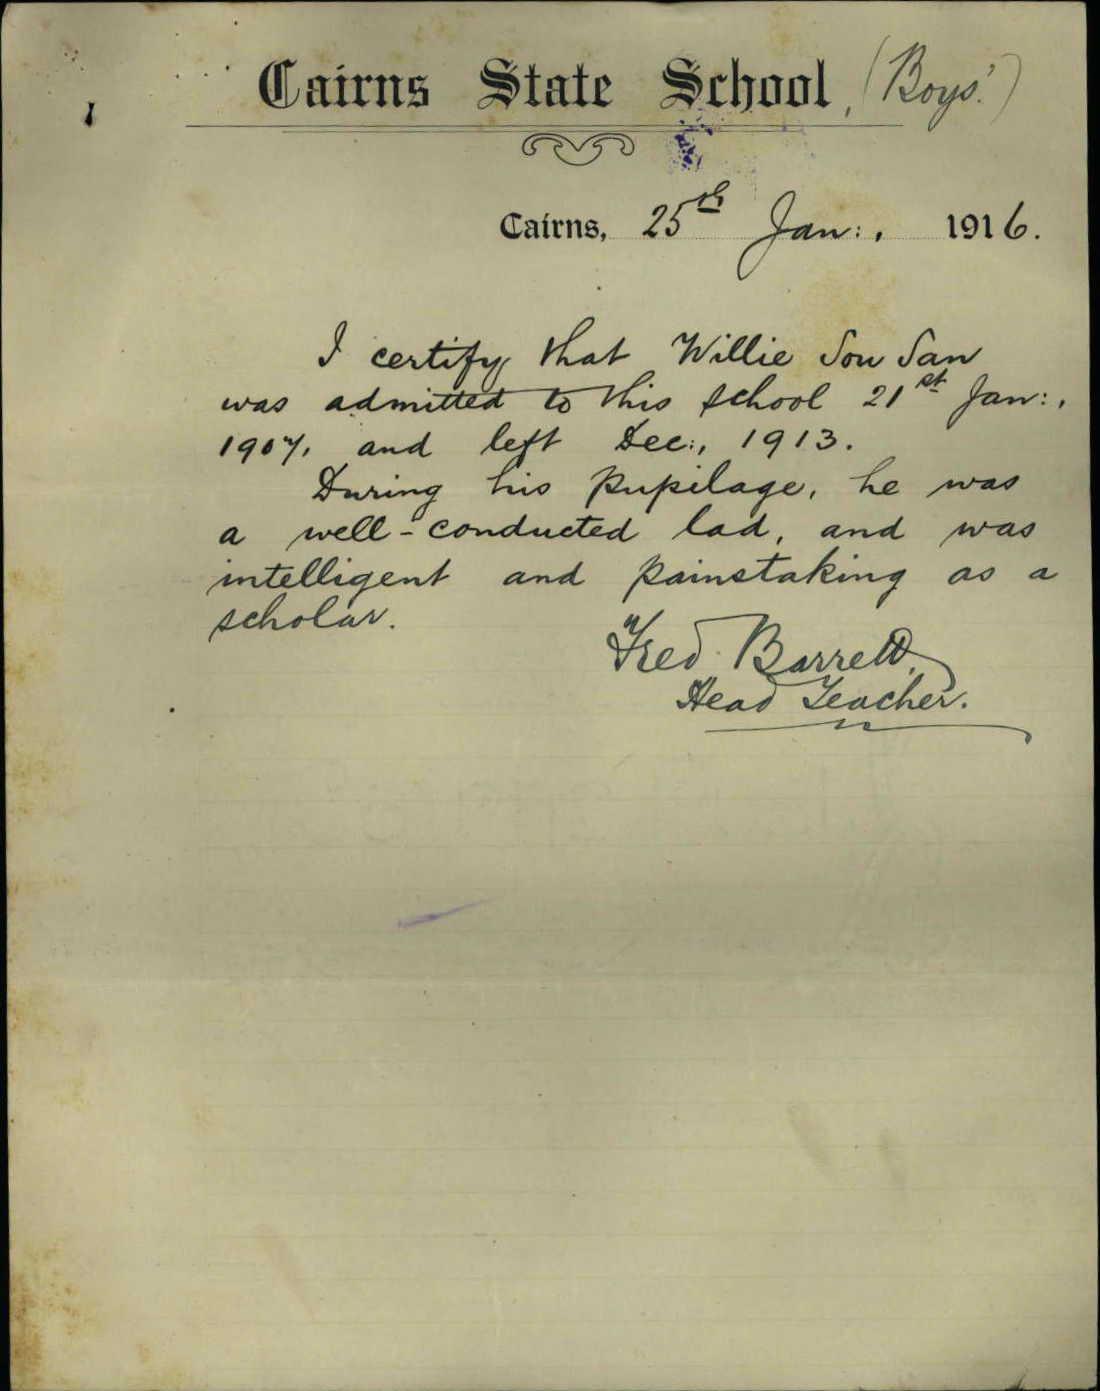 Cairns State School, (Boys'.)
Cairns, 25th Jan:, 1916.
I certify that Willie Sou San
was admitted to this school 21st Jan:,
1907, and left Dec:, 1913.
During his pupilage, he was
a well-conducted lad, and was
intelligent and painstaking as a
scholar.
Fred Barrett,
Head Teacher.